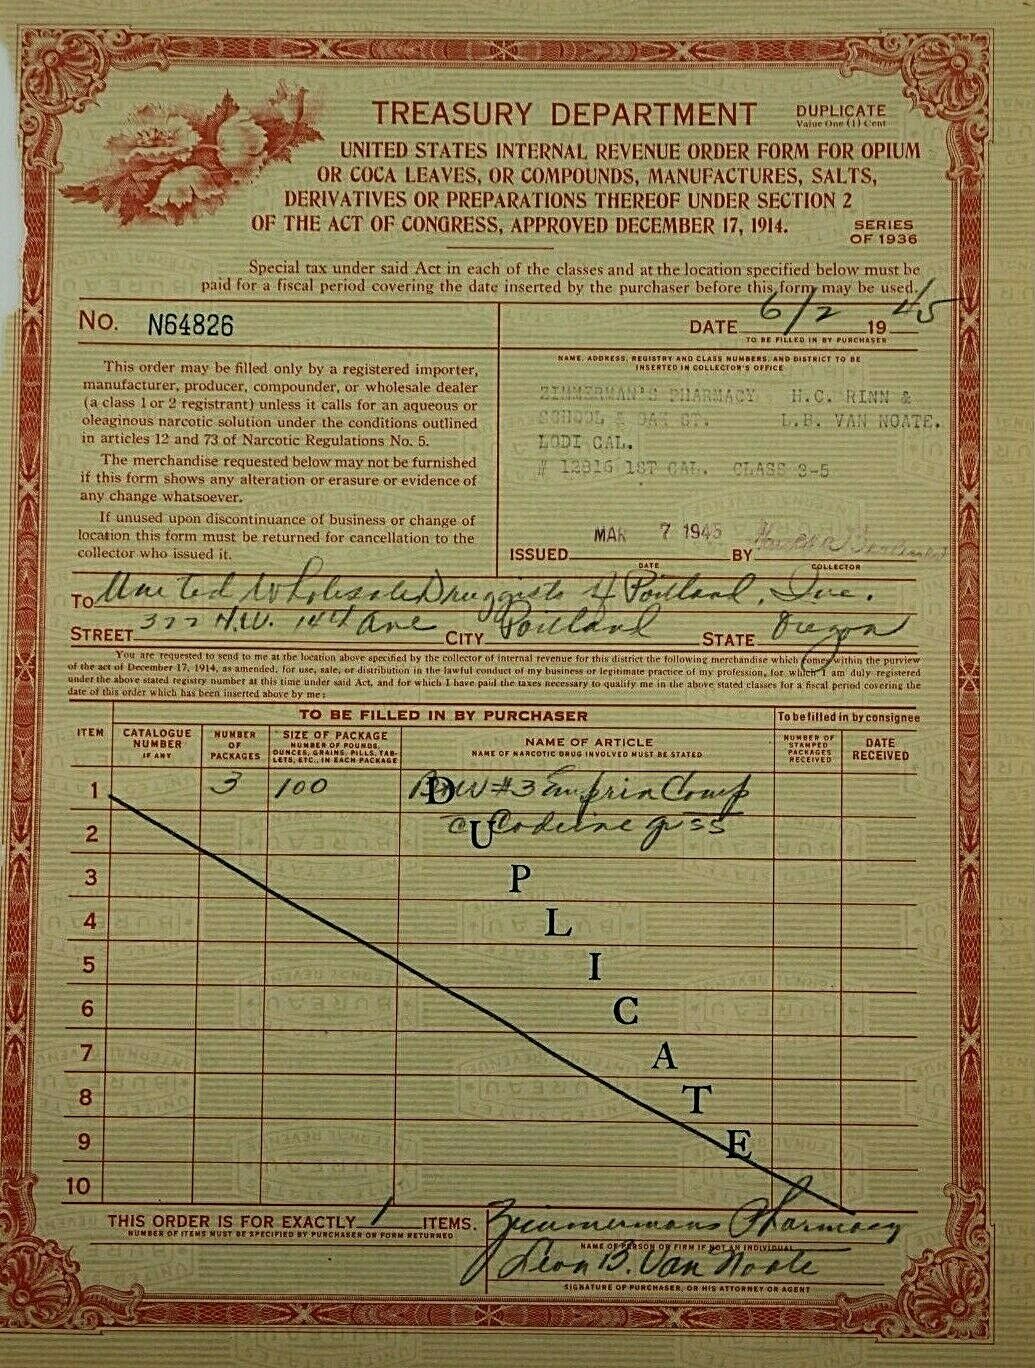 TREASURY DEPARTMENT
DUPLICATE
Value One (1) Cent
UNITED STATES INTERNAL REVENUE ORDER FORM FOR OPIUM
OR COCA LEAVES, OR COMPOUNDS, MANUFACTURES, SALTS,
DERIVATIVES OR PREPARATIONS THEREOF UNDER SECTION 2
OF THE ACT OF CONGRESS, APPROVED DECEMBER 17, 1914.
SERIES
OF 1936
Special tax under said Act in each of the classes and at the location specified below must be
paid for a fiscal period covering the date inserted by the purchaser before this form may be used.
No. N64826
DATE 6/2 1945
TO BE FILLED IN BY PURCHASER
This order may be filled only by a registered importer,
manufacturer, producer, compounder, or wholesale dealer
(a class 1 or 2 registrant) unless it calls for an aqueous or
oleaginous narcotic solution under the conditions outlined
in articles 12 and 73 of Narcotic Regulations No. 5.
The merchandise requested below may not be furnished
if this form shows any alteration or erasure or evidence of
any change whatsoever.
If unused upon discontinuance of business or change of
location this form must be returned for cancellation to the
collector who issued it.
NAME, ADDRESS, REGISTRY AND CLASS NUMBERS, AND DISTRICT TO BE
INSERTED IN COLLECTOR'S OFFICE
ZIMMERMAN'S PHARMACY H.C. RINN &
SCHOOL & OAK ST. L.B. VAN NOATE.
LODI CAL.
# 12816 1ST CAL. CLASS 3-5
ISSUED MAR 7 1945 BY
DATE COLLECTOR
TO United Wholesale Druggists of Portland, Inc.
STREET 322 N.W. 14th Ave CITY Portland STATE Oregon
You are requested to send to me at the location above specified by the collector of internal revenue for this district the following merchandise which comes within the purview
of the act of December 17, 1914, as amended, for use, sale, or distribution in the lawful conduct of my business or legitimate practice of my profession, for which I am duly registered
under the above stated registry number at this time under said Act, and for which I have paid the taxes necessary to qualify me in the above stated classes for a fiscal period covering the
date of this order which has been inserted above by me:
TO BE FILLED IN BY PURCHASER
To be filled in by consignee
ITEM
CATALOGUE
NUMBER
IF ANY
NUMBER
OF
PACKAGES
SIZE OF PACKAGE
NUMBER OF POUNDS,
OUNCES, GRAINS, PILLS, TAB-
LETS, ETC., IN EACH PACKAGE
NAME OF ARTICLE
NAME OF NARCOTIC DRUG INVOLVED MUST BE STATED
NUMBER OF
STAMPED
PACKAGES
RECEIVED
DATE
RECEIVED
1 3 100 B&W #3 Empirin Comp
2 c Codeine gr ss
3
4
5
6
7
8
9
10
DUPLICATE
THIS ORDER IS FOR EXACTLY 1 ITEMS.
NUMBER OF ITEMS MUST BE SPECIFIED BY PURCHASER OR FORM RETURNED
Zimmermans Pharmacy
NAME OF PERSON OR FIRM IF NOT AN INDIVIDUAL
Leon B. Van Noate
SIGNATURE OF PURCHASER, OR HIS ATTORNEY OR AGENT